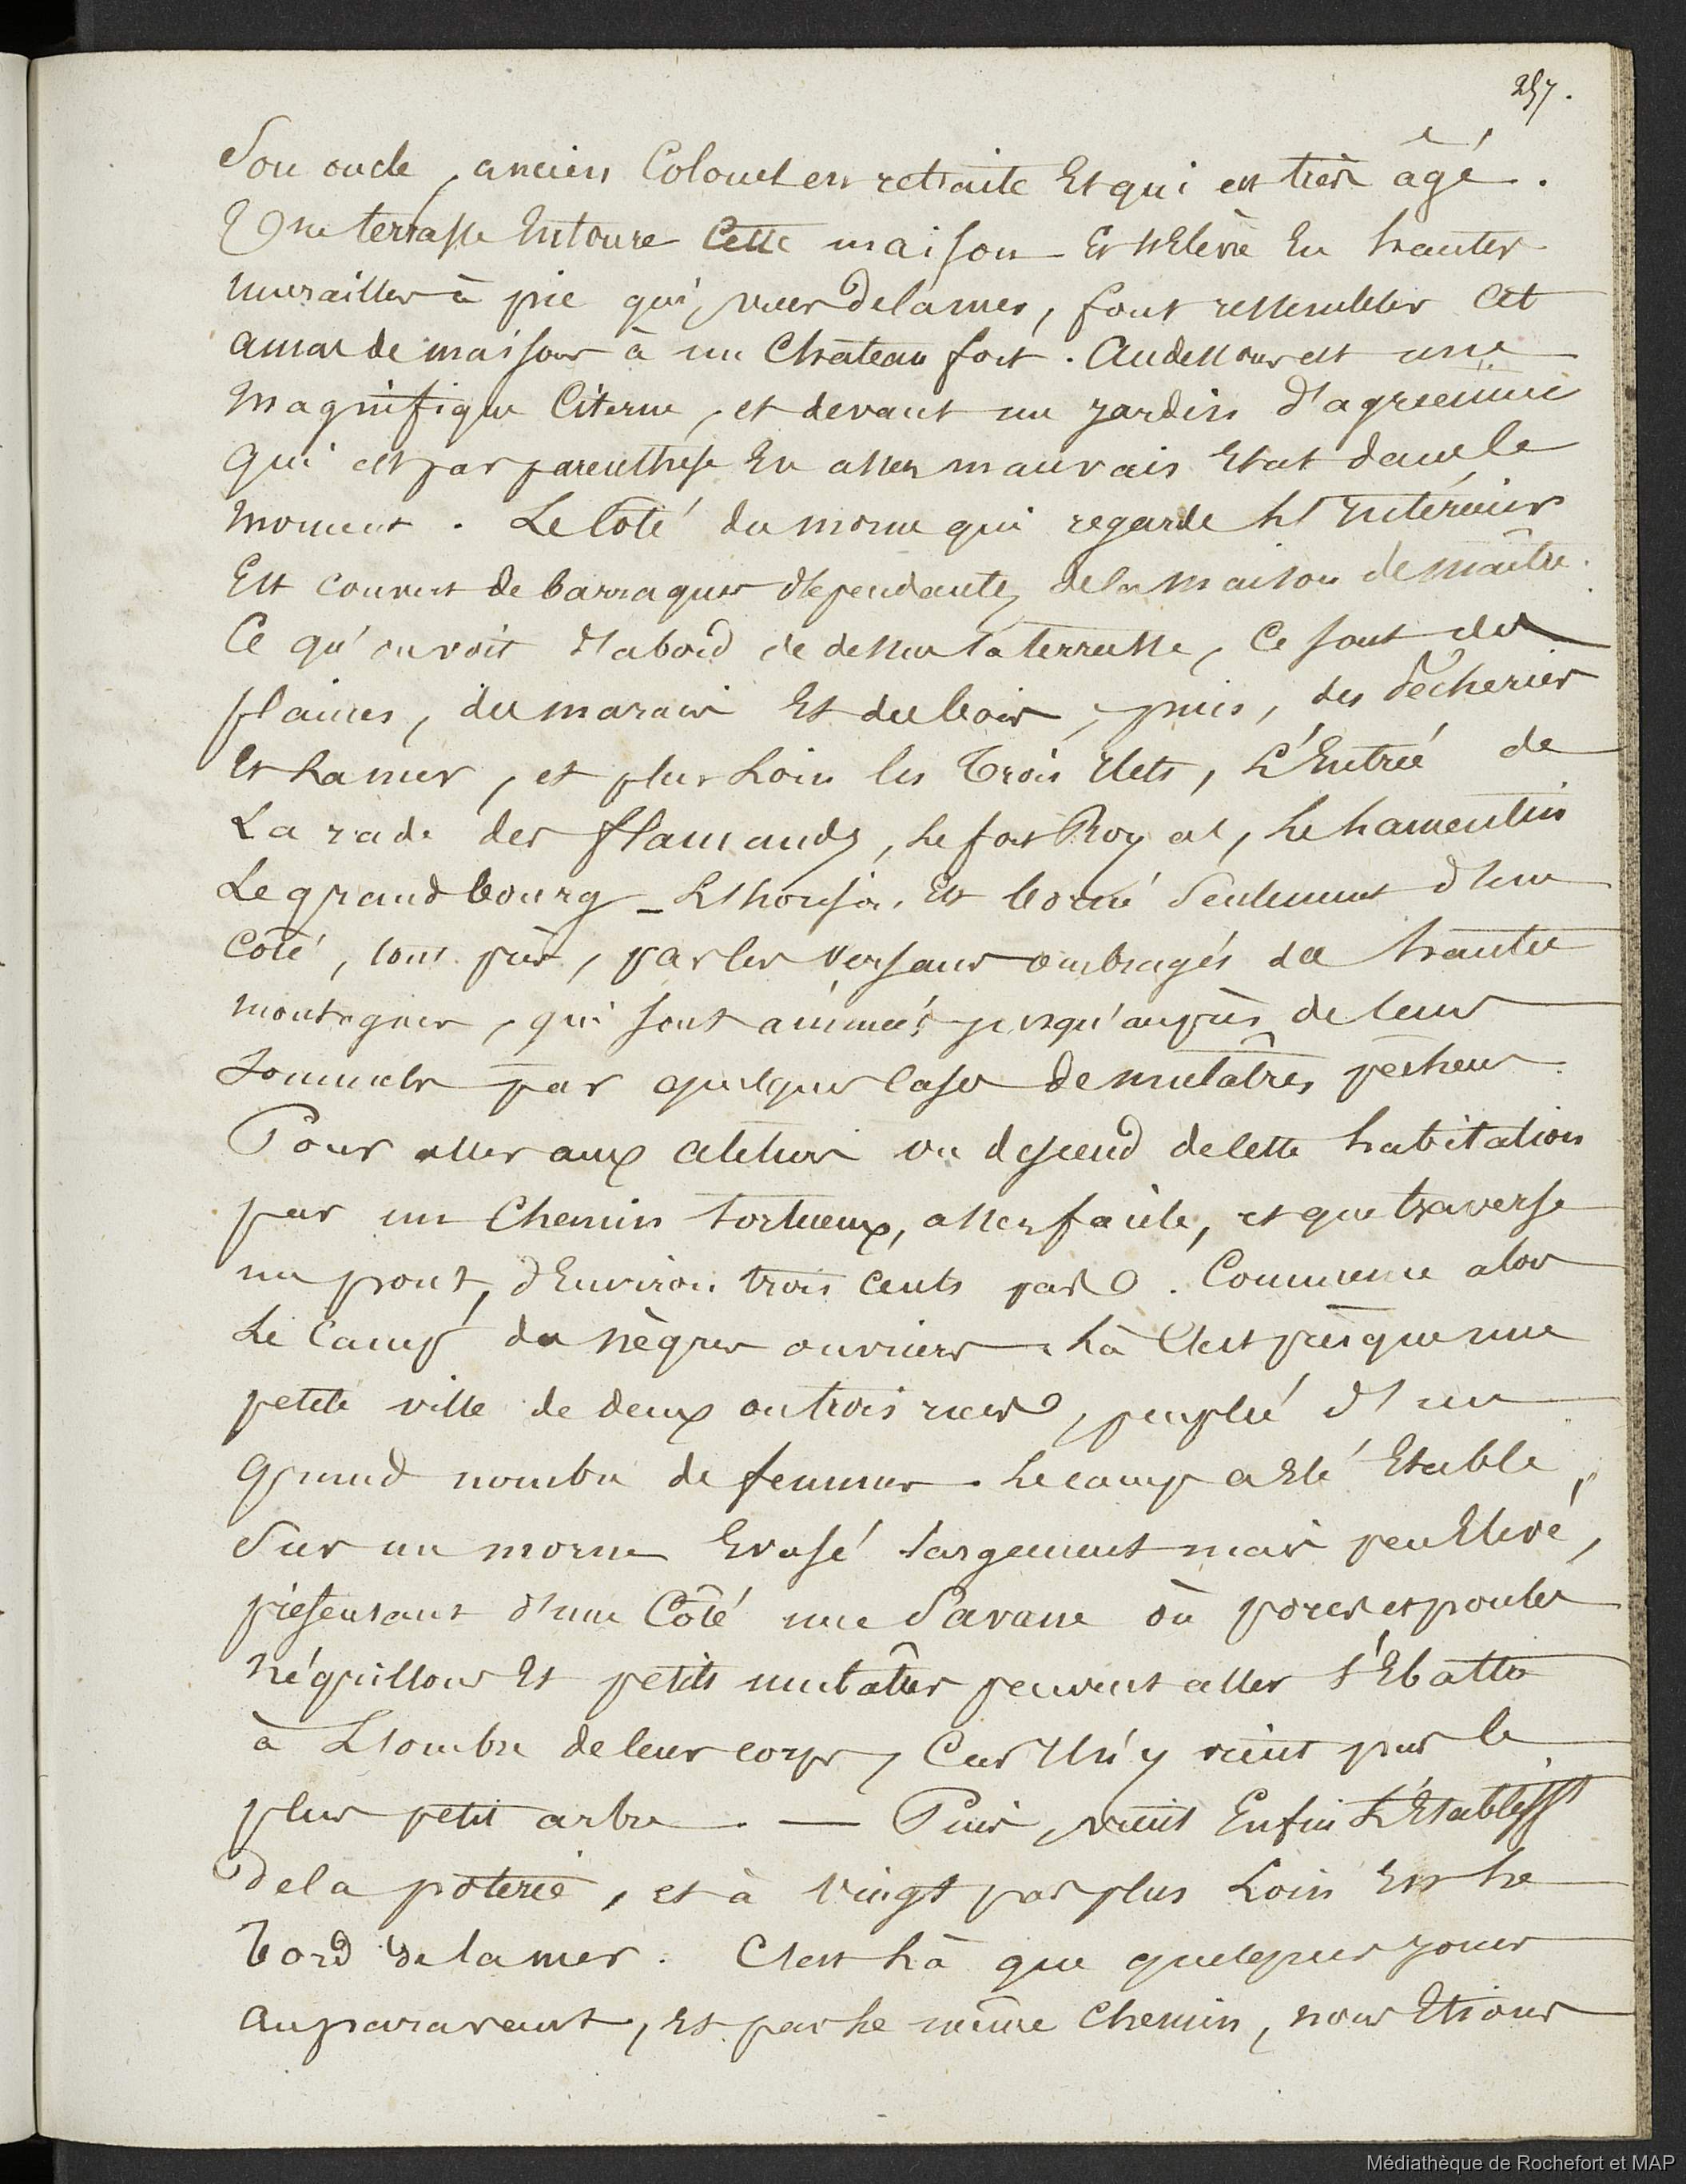 257.
Son oncle, ancien Colonel en retraite Et qui est très âgé.
Une terrasse Entoure Cette maison Et s'Elève En hautes
murailles à pic qui, vues de la mer, font ressembler Cet
amas de maisons à un Chateau fort. Au dessous est une
magnifique Citerne, et devant un jardin d'agrément
qui est par parenthèse En assez mauvais Etat dans le
moment. Le Côté du morne qui regarde L'Intérieur
Est couvert de barraques dépendantes de la maison de maître.
Ce qu'on voit d'abord de dessus la terrasse, Ce sont des
plaines, des marais Et des bois, puis, des sécheries
Et La mer, et plus Loin les trois Ilets, L'Entrée de
La rade des flamands, Le fort Royal, Le Lamentin
Le grand bourg _ L'horison Est borné Seulement d'un
Côté, tout près, par les versans ombragés de hautes
montagnes, qui sont animées jusqu'auprès de leurs
Sommets par quelques Cases de mulâtres pêcheurs.
Pour aller aux ateliers on descend de Cette habitation
par un Chemin tortueux, assez facile, et que traverse
un pont, d'Environ trois Cents pas. Commence alors
Le Camp des nègres ouvriers. Là C'est presque une
petite ville de deux ou trois rues, peuplé d'un
grand nombre de femmes. Le camp a Eté Etabli,
Sur un morne Evasé largement mais peu Elevé,
présentant d'un Côté une Savane où porcs et poules
Négrillons Et petits mulâtres peuvent aller s'Ebattre
à L'ombre de leur corps, Car Il n'y vient pas le
plus petit arbre. — Puis, vient Enfin L'Etablisst
de la poterie, et à vingt pas plus Loin Est Le
bord de la mer. C'est Là que quelques jours
auparavant, Et par Le même Chemin, nous Etions